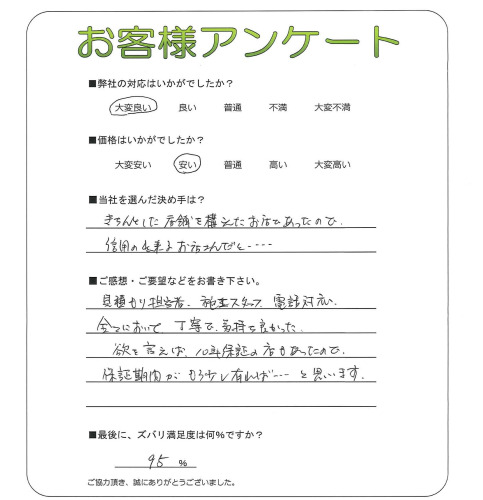 お客様アンケート
■弊社の対応はいかがでしたか？
大変良い 良い 普通 不満 大変不満
■価格はいかがでしたか？
大変安い 安い 普通 高い 大変高い
■当社を選んだ決め手は？
きちんとした店舗を構えたお店であったので、
信用の出来るお店さんだと----
■ご感想・ご要望などをお書き下さい。
見積もり担当者、施工スタッフ、電話対応、
全てにおいて丁寧で、気持ち良かった。
欲を言えば、10年保証の店もあったので、
保証期間がもう少し有れば----と思います。
■最後に、ズバリ満足度は何%ですか？
95 %
ご協力頂き、誠にありがとうございました。